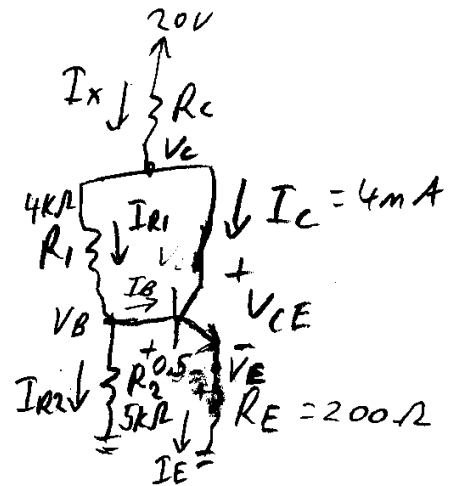 20V
Ix
Rc
Vc
4kΩ
R1
IR1
IC = 4mA
IB
+
VCE
VB
+0.5
-
VE
IR2
R2
5kΩ
RE = 200Ω
IE